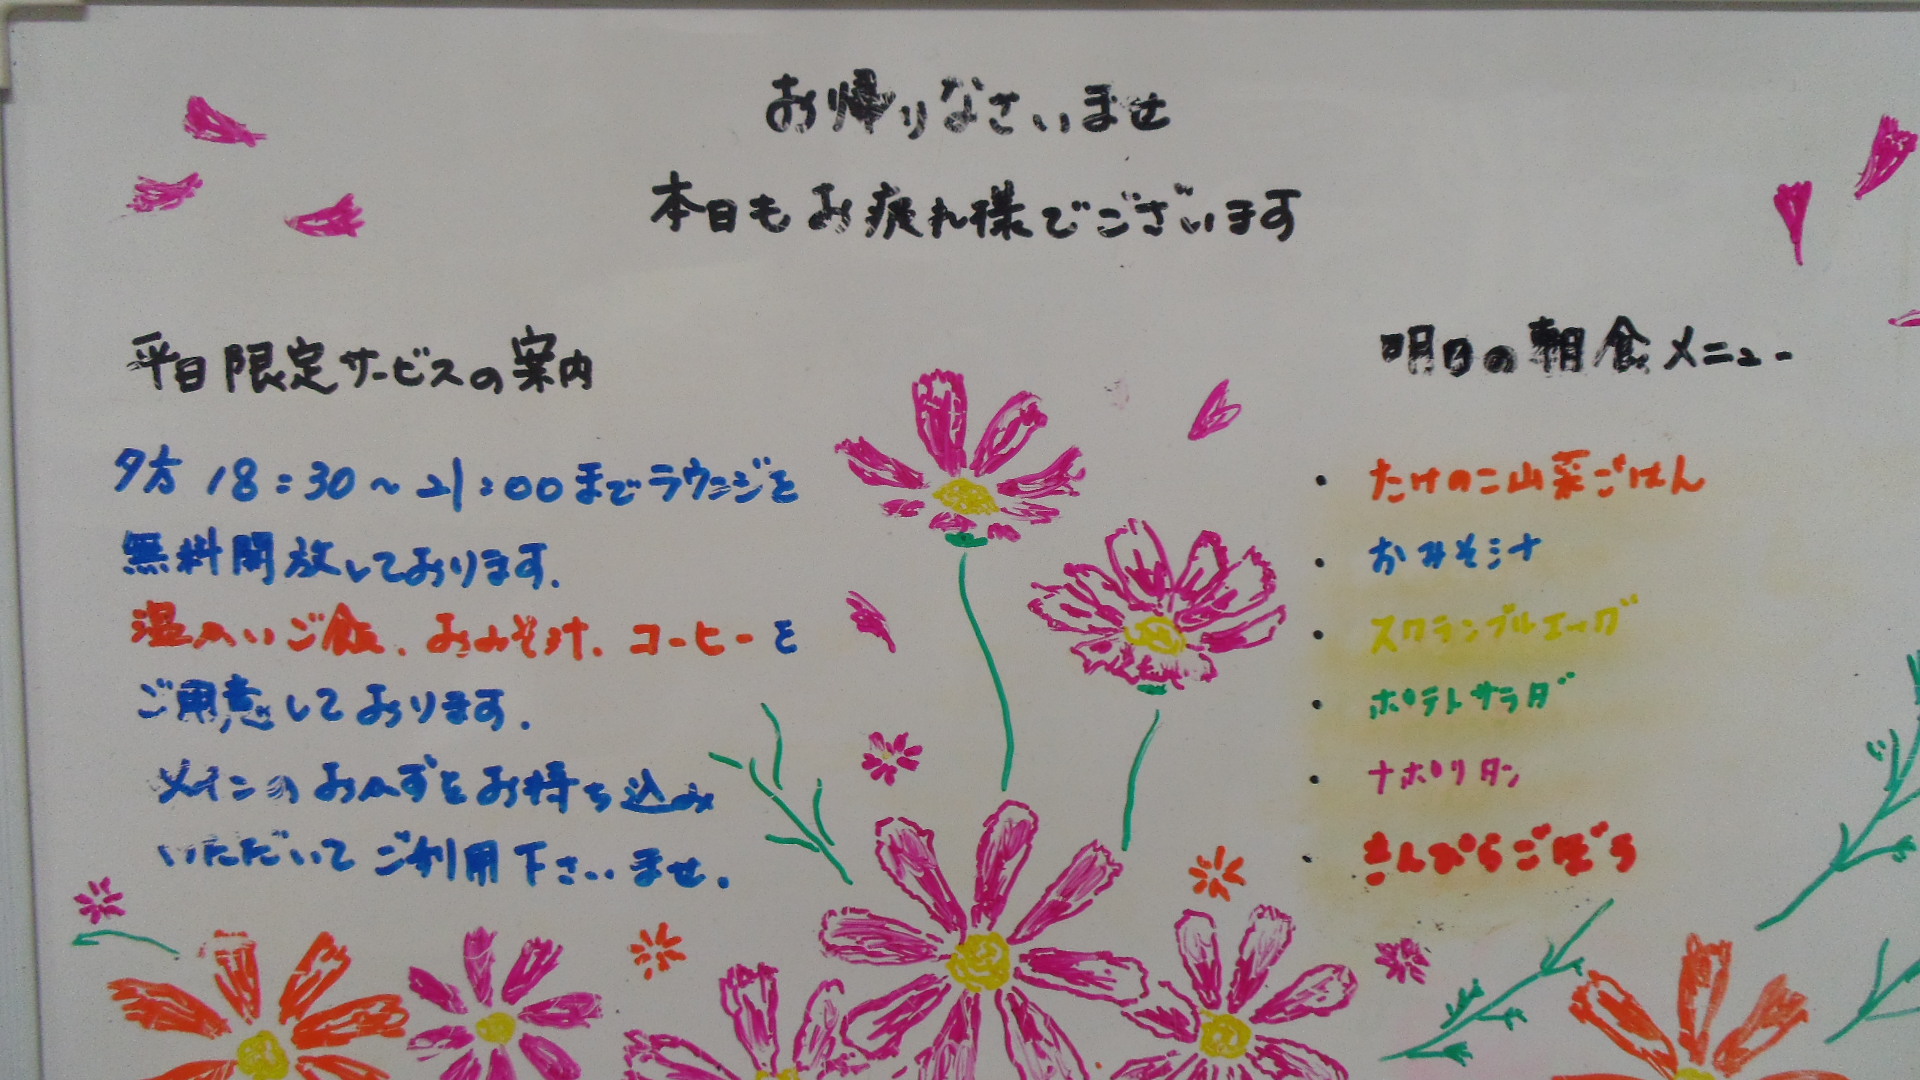 お帰りなさいませ
本日もお疲れ様でございます
平日限定サービスの案内
夕方 18:30～21:00までラウンジを
無料開放しております.
温かいご飯、おみそ汁、コーヒーを
ご用意しております.
メインのおかずをお持ち込み
いただいてご利用下さいませ.
明日の朝食メニュー
・ たけのこ山菜ごはん
・ おみそ汁
・ スクランブルエッグ
・ ポテトサラダ
・ ナポリタン
・ きんぴらごぼう